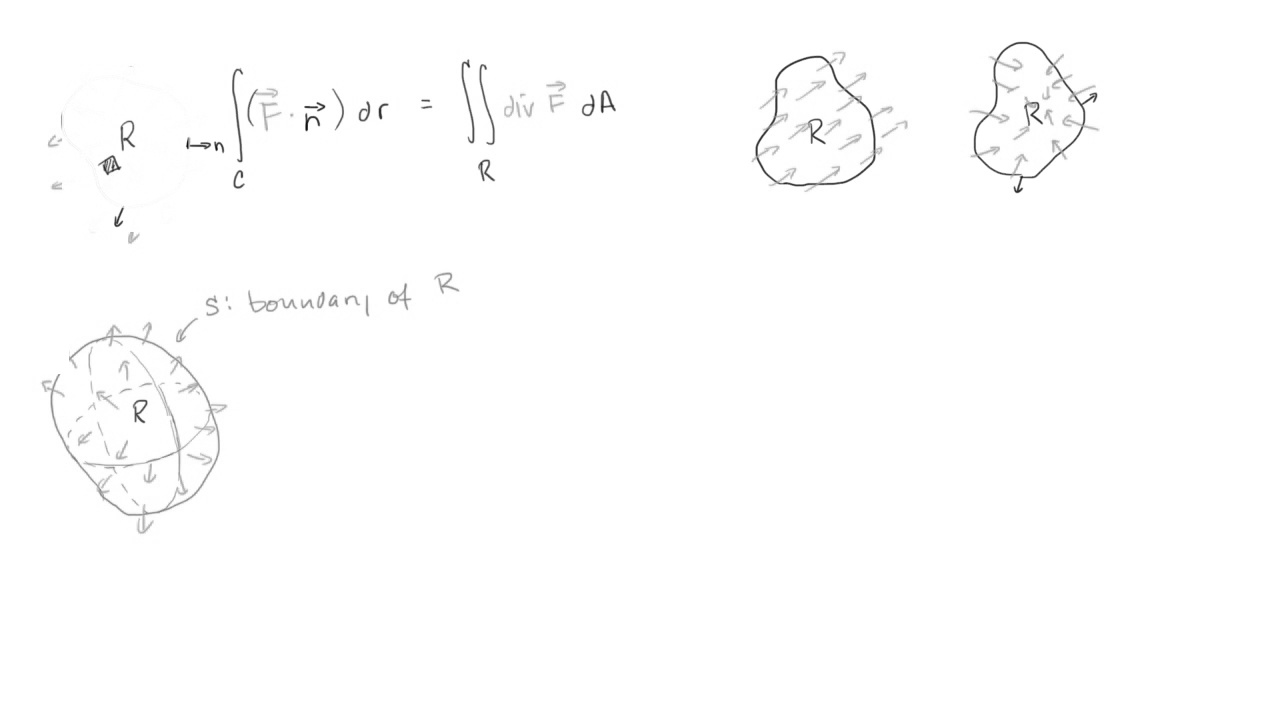 R →n ∫ (F⃗ · n⃗) dr = ∬ div F⃗ dA
C R
R
R
S: boundary of R
R